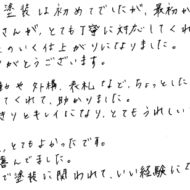 塗装は初めてでしたが、最初か
さんが、とても丁寧に対応してくれ
とのいく仕上がりになりました。
りがとうございます。
動や外構、表札など、ちょっとした
してくれて、助かりました。
きりとキレイになり、とてもうれしい
、とてもよかったです。
喜んでました。
で塗装に関われて、いい経験に